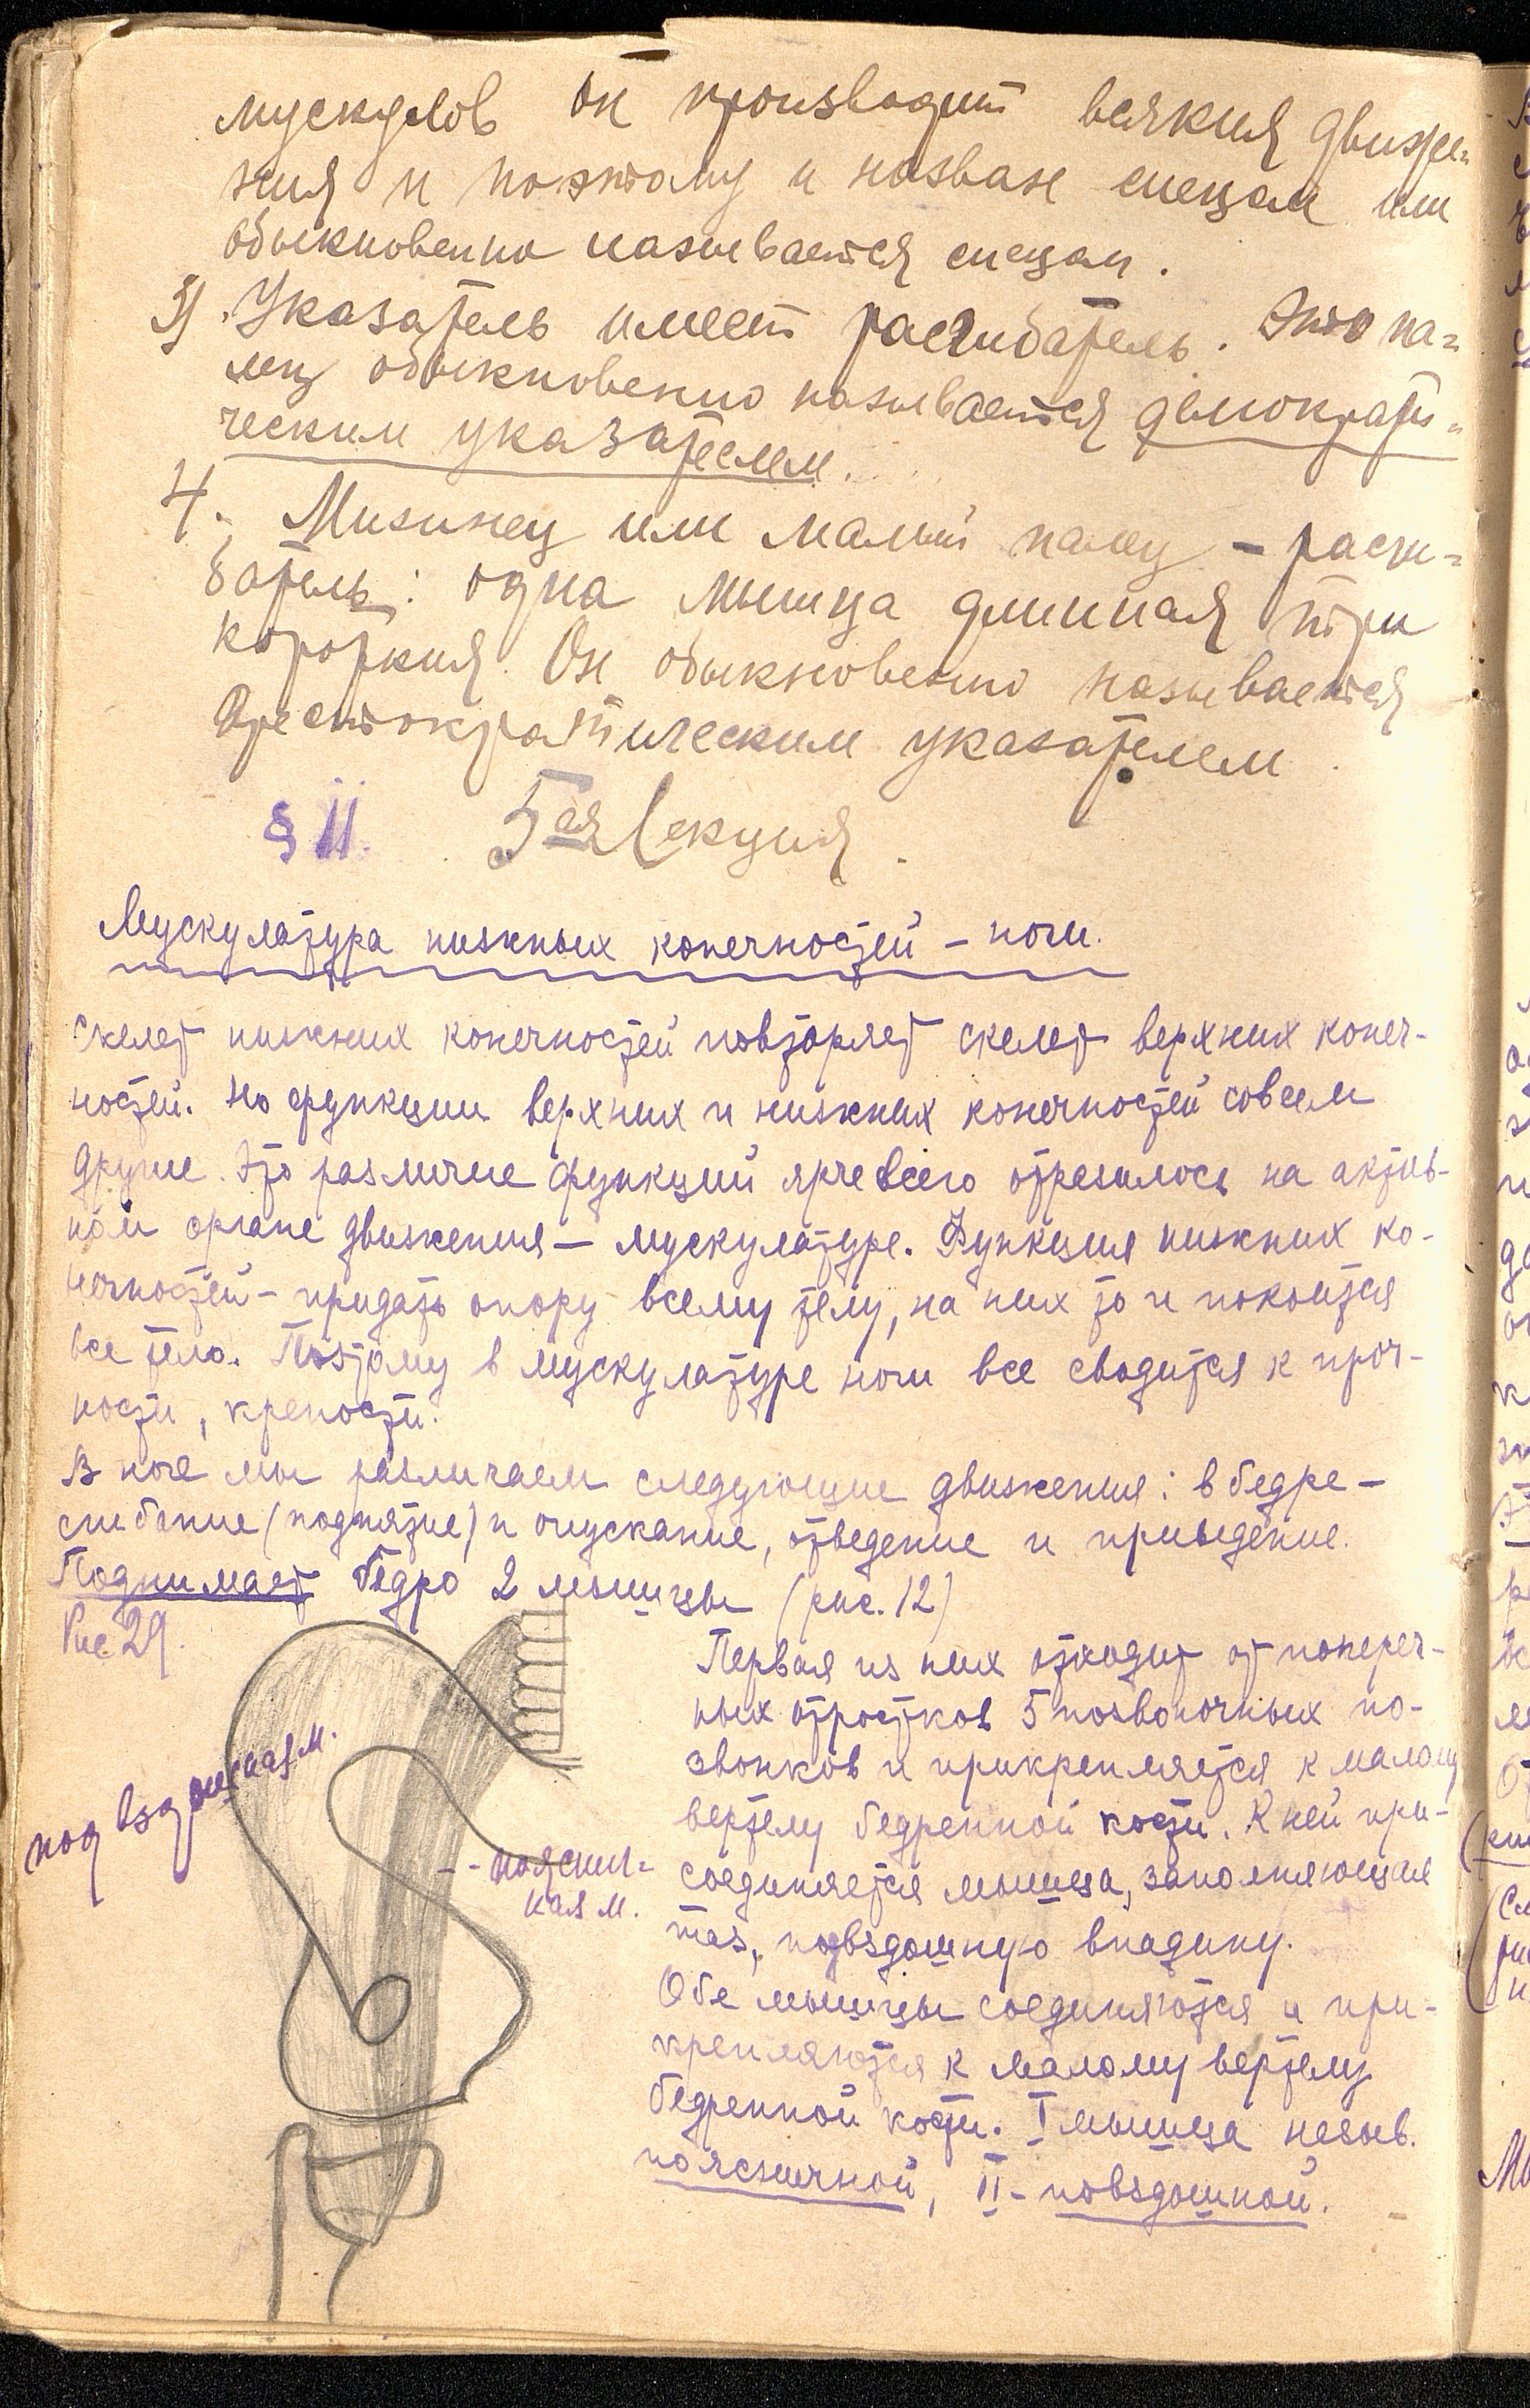 мускулов он производит всякия движе=
ния и поэтому и назван спецом или
обыкновенно называется спецом.
3) Указатель имеет расгибатель. Это па=
лец обыкновенно называется демократи=
ческим указателем.
4. Мизинец или малый палец – расги=
батель: одна мышца длинная три
короткия. Он обыкновенно называется
Аристократическим указателем.
§ 11. 5ая Лекция.
Мускулатура нижных конечностей – ноги.
Скелет нижних конечностей повторяет скелет верхних конеч-
ностей. Но функции верхних и нижних конечностей совсем
другие. Это различие функций ярче всего отрезилось на актив-
ном органе движения – мускулатуре. Функция нижних ко-
нечностей – придать опору всему телу, на них то и покоится
все тело. Поэтому в мускулатуре ноги все сводится к проч-
ности, крепости.
В ноге мы различаем следующие движения: в бедре –
сгибание (поднятие) и опускание, отведение и приведение.
Поднимает бедро 2 мышцы (рис. 12)
Рис 29.
Первая из них отходит от попереч-
ных отростков 5 позвоночных по-
звонков и прикрепляется к малому
вертелу бедренной кости. К ней при-
соединяется мышца, заполняющая
таз, подвздошную впадину.
Обе мышцы соединяются и при-
крепляются к малому вертелу
бедренной кости. I мышца назыв.
поясничной, II – повздошной.
под вздошная м.
-- пояснич=
ная м.